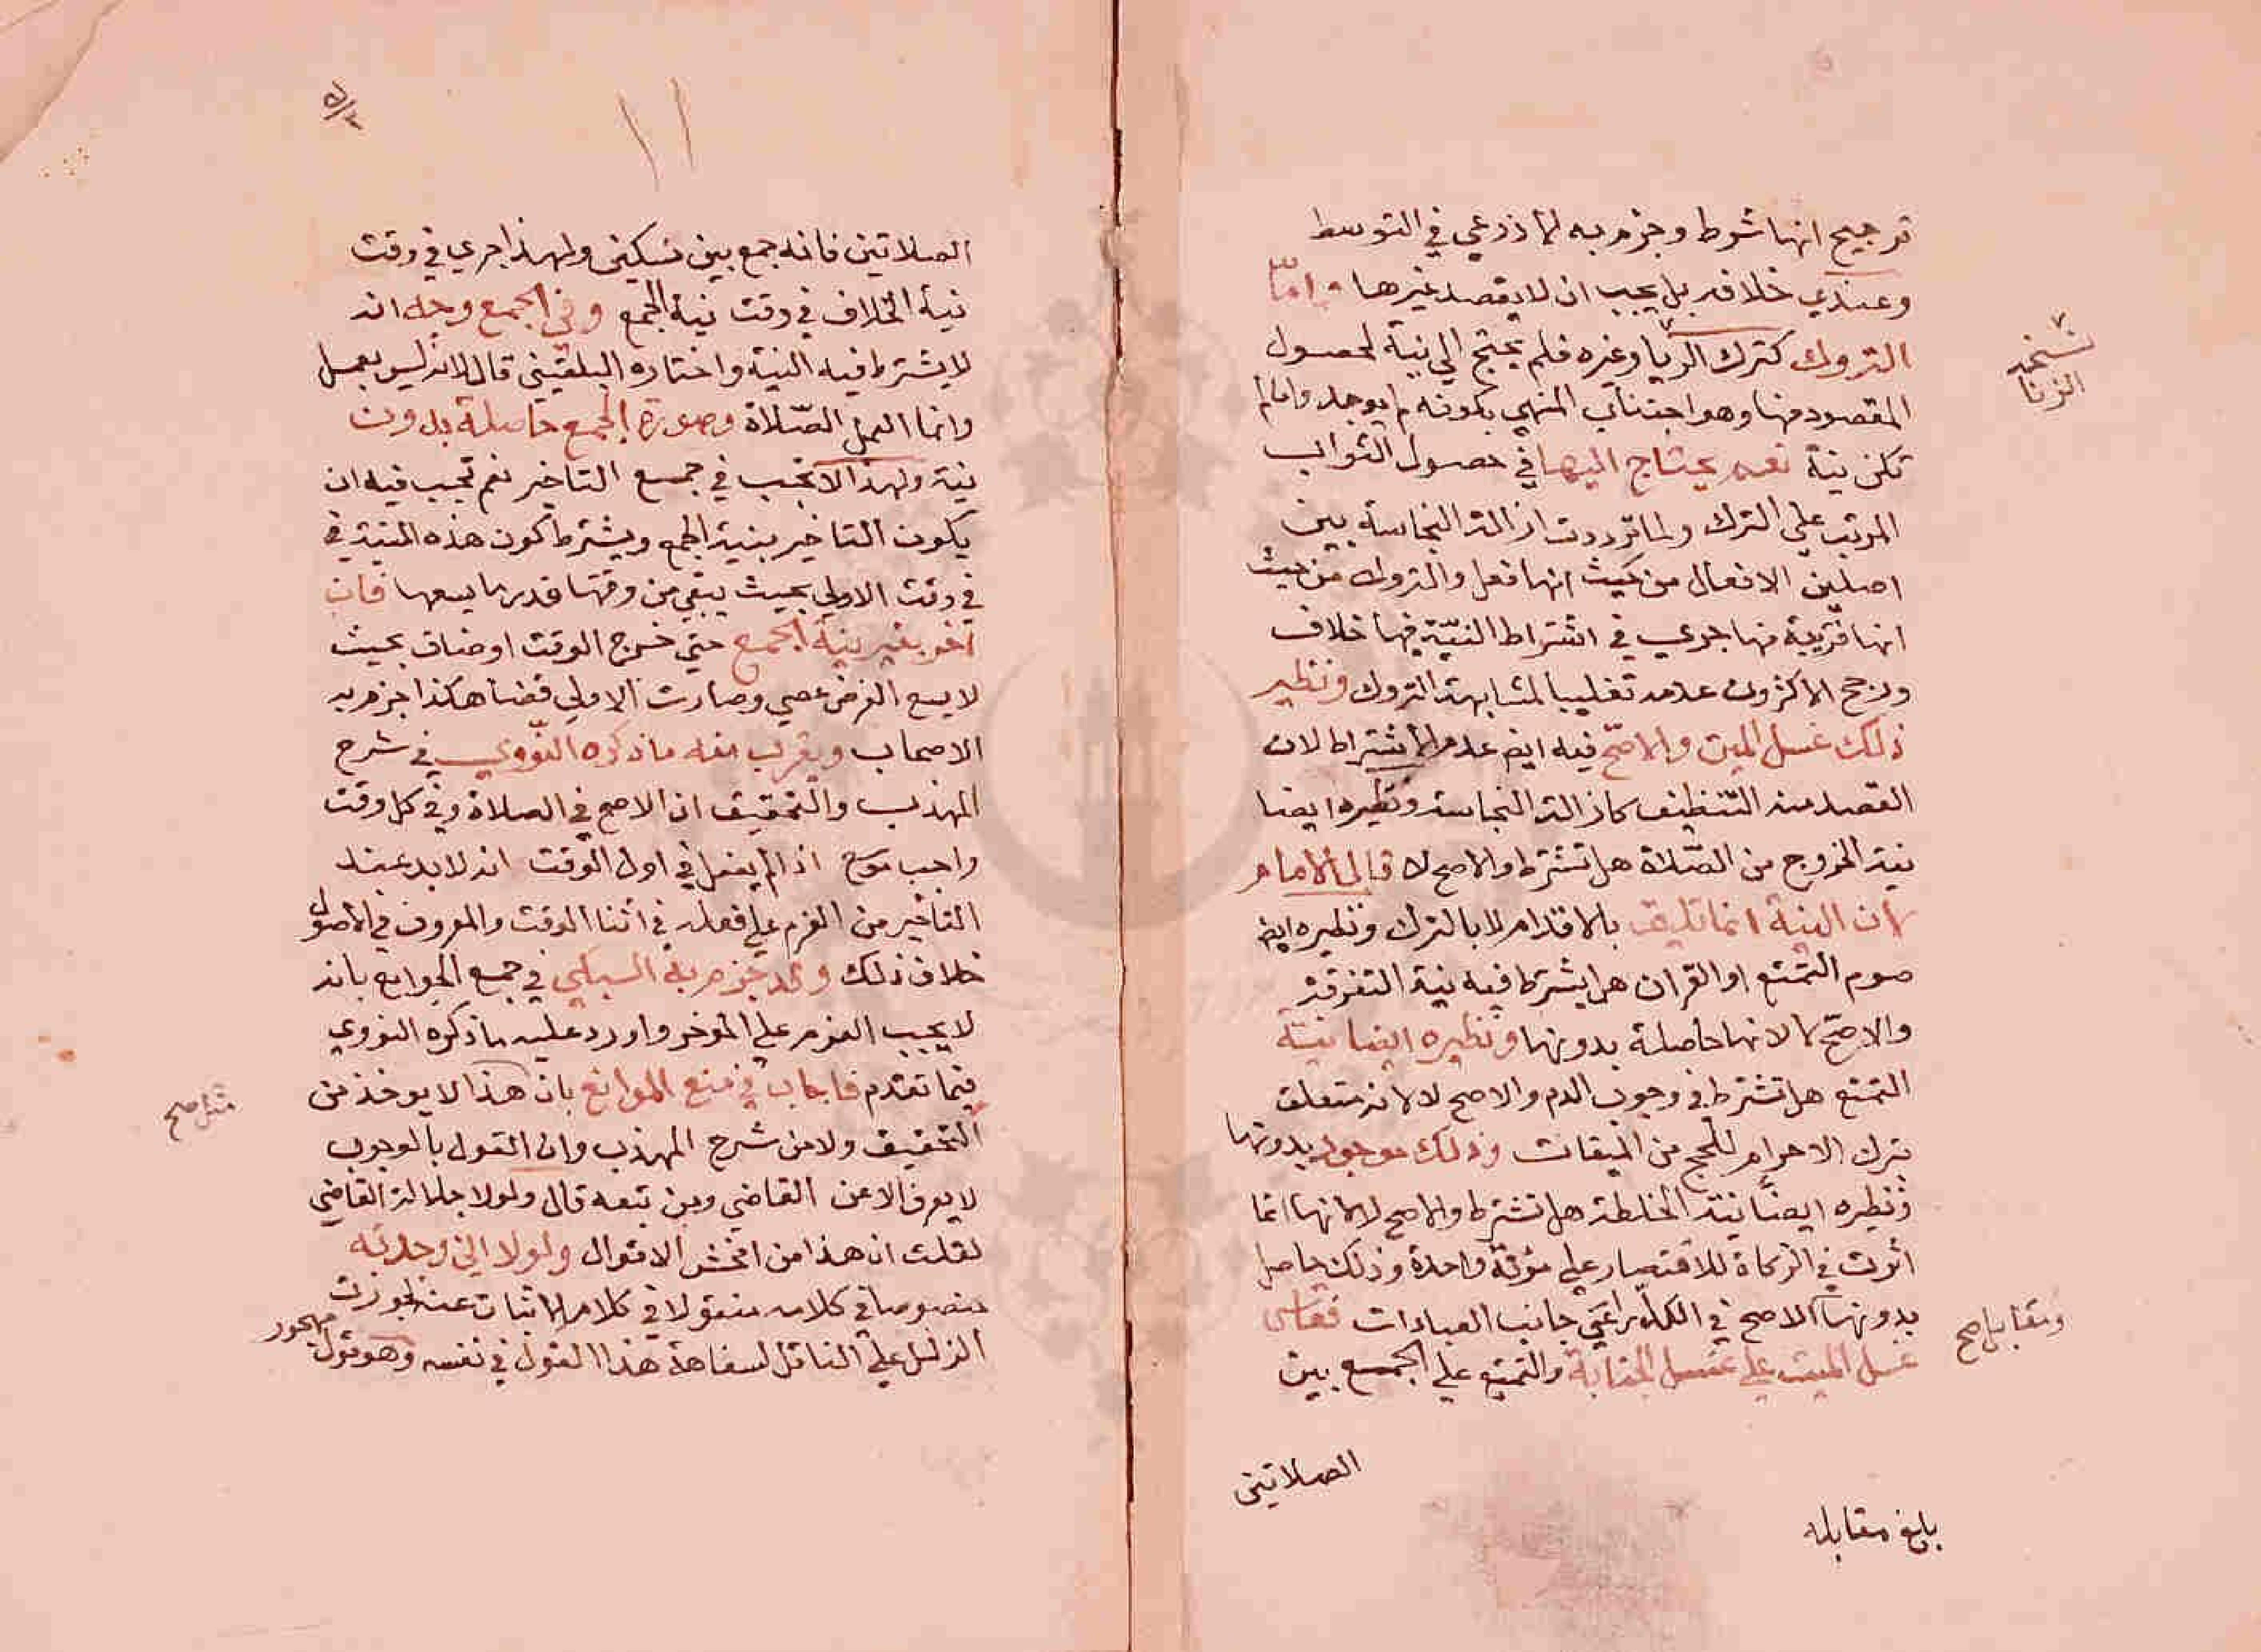 ترجيح انها شرط وجزم به الاذرعي في التوسط
وعندي خلافه بل يجب ان لا يقصد غيرها واما
التروك كترك الريا وغيره فلم يحتج الي نية لحصول
المقصود منها وهو اجتناب المنهي بكونه لم يوجد وان لم
تكن نية نعم يحتاج اليها في حصول الثواب
المرتب علي الترك ولما ترددت ازالة النجاسة بين
اصلين الافعال من حيث انها فعل والتروك من حيث
انها قريبة منها جري في اشتراط النية فيها خلاف
ورجح الاكثرون عدمه تغليبا لمشابهة التروك ونظير
ذلك غسل الميت والاصح فيه ايض عدم الاشتراط لان
القصد منه التنظيف كازالة النجاسة ونظيره ايضا
نية الخروج من الصلاة هل تشترط والاصح لا قال الامام
لان النية انما تليق بالاقدام لا بالترك ونظيره ايض
صوم التمتع او القران هل يشترط فيه نية التفرقة
والاصح لا لانها حاصلة بدونها ونظيره ايضا نية
التمتع هل تشترط في وجوب الدم والاصح لا لانه متعلق
بترك الاحرام للحج من الميقات وذلك موجود بدونها
ونظيره ايضا نية الخلطة هل تشترط والاصح لا لانها انما
اثرت في الزكاة للاقتصار علي مؤنة واحدة وذلك حاصل
بدونها الاصح في الكل راعي جانب العبادات فقاس
غسل الميت علي غسل الجنابة والتمتع علي الجمع بين
نسخه
الزنا
ومقابل صح
الصلاتين
بلغ مقابلة
الصلاتين فانه جمع بين نسكين ولهذا جري في وقت
نية الخلاف في وقت نية الجمع وفي الجمع وجه انه
لا يشترط فيه النية واختاره البلقيني قال لانه ليس بعمل
وانما العمل الصلاة وصورة الجمع حاصلة بدون
نية ولهذا لا تجب في جمع التاخير نعم تجب فيه ان
يكون التاخير بنية الجمع ويشترط كون هذه النية في
في وقت الاولي بحيث يبقي من وقتها قدر ما يسعها فان
اخر بغير نية الجمع حتي خرج الوقت او ضاق بحيث
لا يسع الفرض عصي وصارت الاولي قضا هكذا جزم به
الاصحاب ويقرب منه ما ذكره النووي في شرح
المهذب والتحقيق ان الاصح في الصلاة وفي كل وقت
واجب موسع اذا لم يفعل في اول الوقت انه لا بد عند
التاخير من العزم علي فعله في اثنا الوقت والمعروف في الاصول
خلاف ذلك وقد جزم به السبكي في جمع الجوامع بانه
لا يجب العزم علي الموخر واورد عليه ما ذكره النووي
فيما تقدم فاجاب في منع الموانع بان هذا لا يوخذ من
التحقيق ولا من شرح المهذب وان القول بالوجوب
لا يعرف الا عن القاضي ومن تبعه قال ولولا جلالة القاضي
لقلت ان هذا من افحش الاقوال ولولا اني وجدته
منصوصا في كلامه منقولا في كلام الاثبات عنه لجوزت
الزلل علي الناقل لسفاهة هذا القول في نفسه وهو قول مهجور